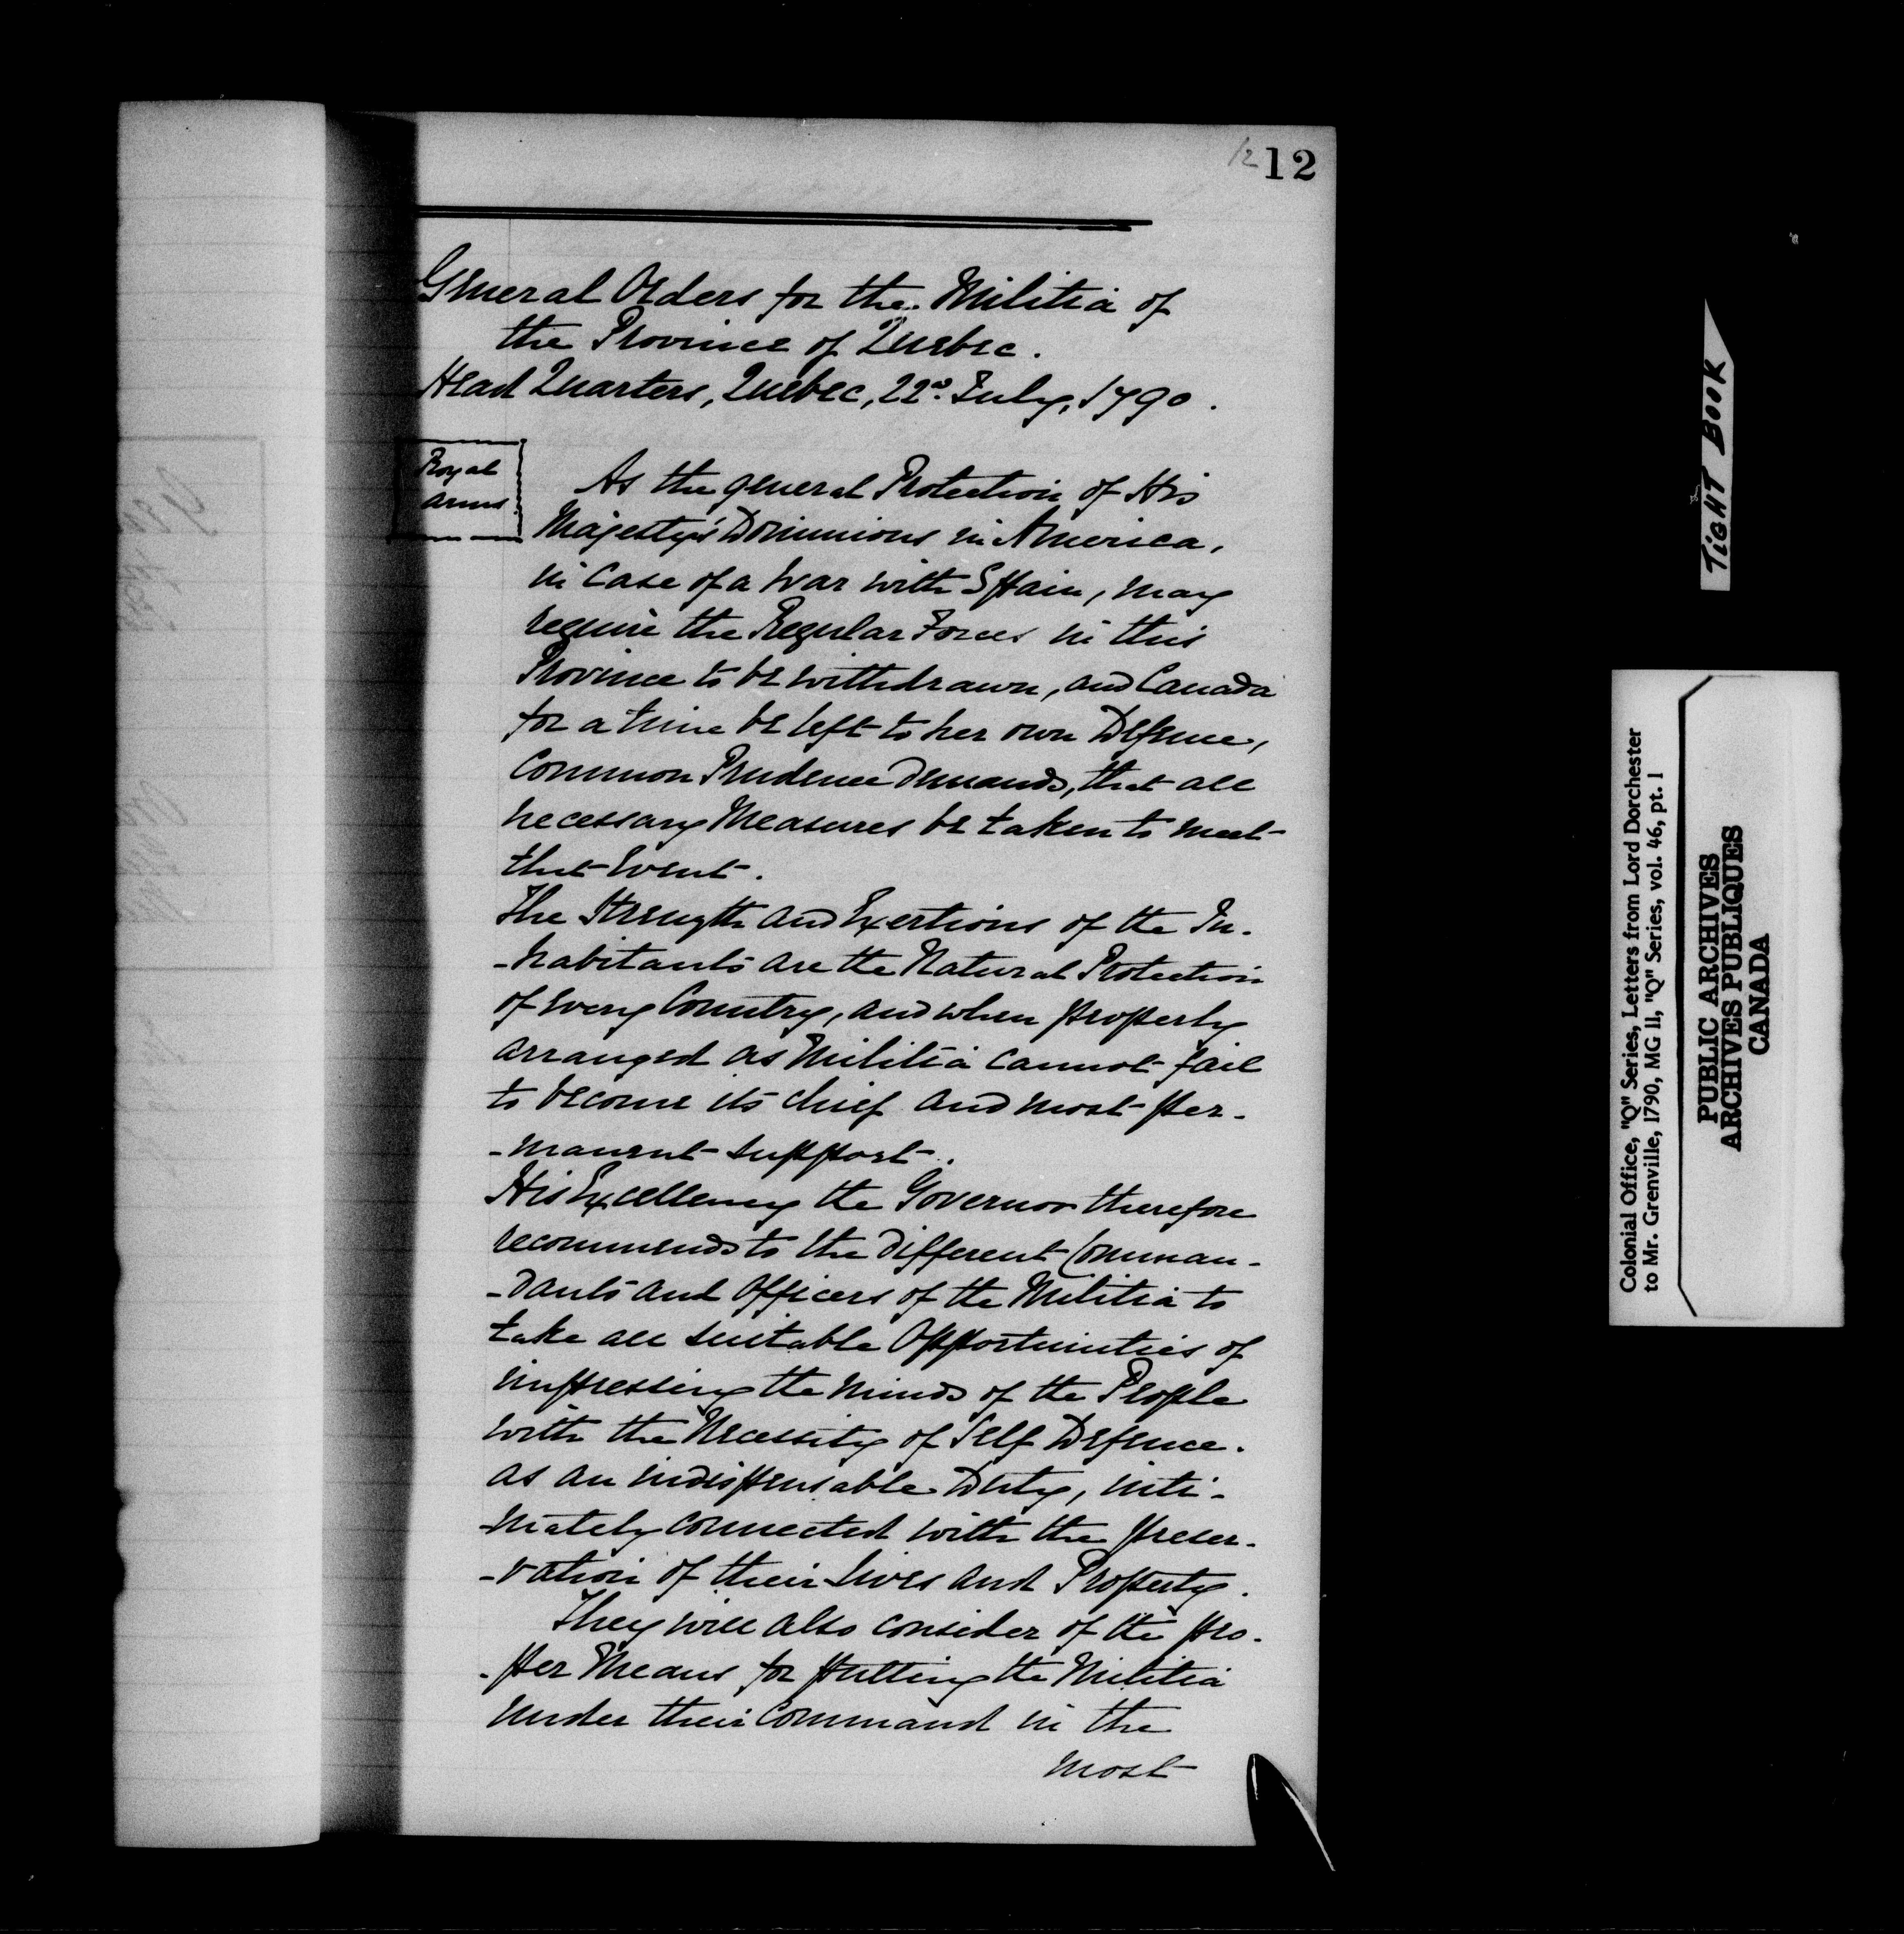 12 12
General Orders for the Militia of
the Province of Quebec.
Head Quarters, Quebec, 22d. July, 1790.
Royal
Arms
As the general Protection of His
Majesty's Dominions in America,
in case of a War with Spain, may
require the Regular Forces in this
Province to be withdrawn, and Canada
for a time be left to her own Defence,
Common Prudence demands, that all
necessary Measures be taken to meet
that Event.
The Strength and Exertions of the In-
-habitants are the Natural Protection
of every Country, and when properly
arranged as Militia cannot fail
to become its chief and most per-
-manent support.
His Excellency the Governor therefore
recommends to the different Comman-
-dants and Officers of the Militia to
take all suitable Opportunities of
impressing the minds of the People
with the Necessity of Self Defence.
as an indispensable Duty, inti-
-mately connected with the preser-
-vation of their Lives and Property.
They will also consider of the pro-
-per Means for putting the Militia
under their Command in the
most
TIGHT BOOK
Colonial Office, "Q" Series, Letters from Lord Dorchester
to Mr. Grenville, 1790, MG 11, "Q" Series, vol. 46, pt. 1
PUBLIC ARCHIVES
ARCHIVES PUBLIQUES
CANADA